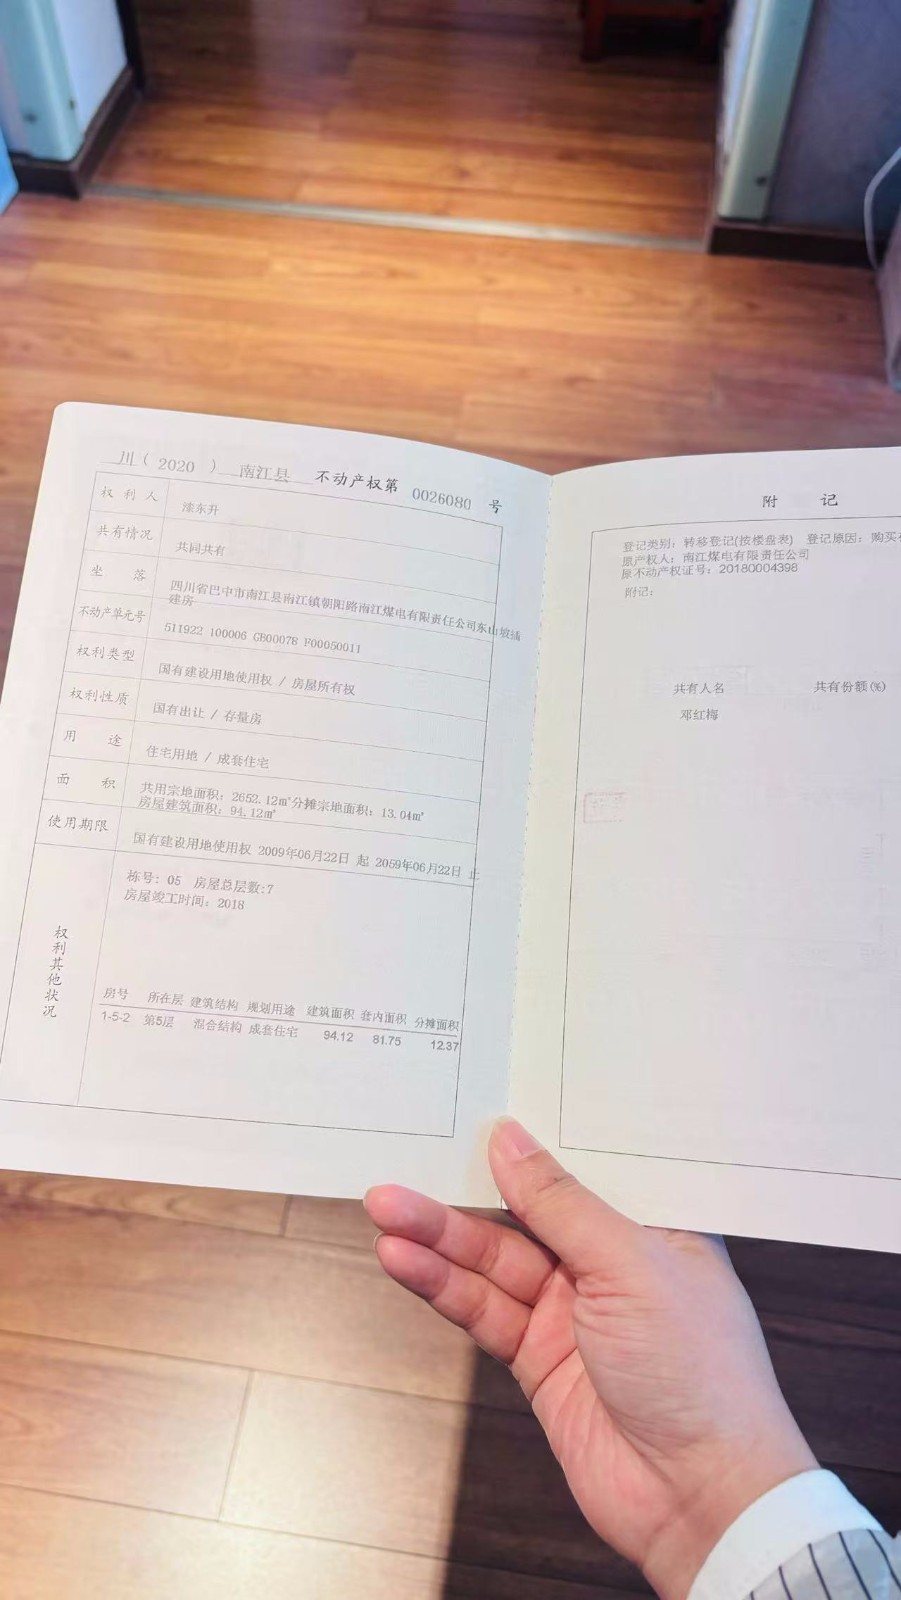 川（ 2020 ）南江县 不动产权第 0026080 号
权利人 漆东升
共有情况 共同共有
坐落 四川省巴中市南江县南江镇朝阳路南江煤电有限责任公司东山坡
建房
不动产单元号 511922 100006 GB00078 F00050011
权利类型 国有建设用地使用权 / 房屋所有权
权利性质 国有出让 / 存量房
用途 住宅用地 / 成套住宅
面积 共用宗地面积：2652.12㎡分摊宗地面积：13.04㎡
房屋建筑面积：94.12㎡
使用期限 国有建设用地使用权 2009年06月22日 起 2059年06月22日 止
权利其他状况
栋号：05 房屋总层数:7
房屋竣工时间：2018
房号 所在层 建筑结构 规划用途 建筑面积 套内面积 分摊面积
1-5-2 第5层 混合结构 成套住宅 94.12 81.75 12.37
附 记
登记类别：转移登记(按楼盘表) 登记原因：购买
原产权人：南江煤电有限责任公司
原不动产权证号：20180004398
附记：
共有人名 共有份额(%)
邓红梅